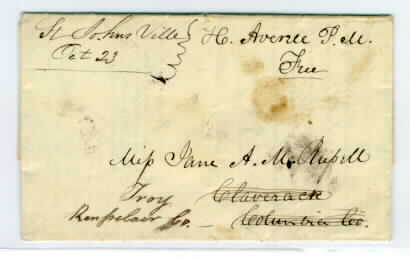 St Johns Ville
Oct 23
H. Averell P. M.
Free
Miss Jane A. McRussell
Troy Claverack
Rensselaer Co. Columbia Co.